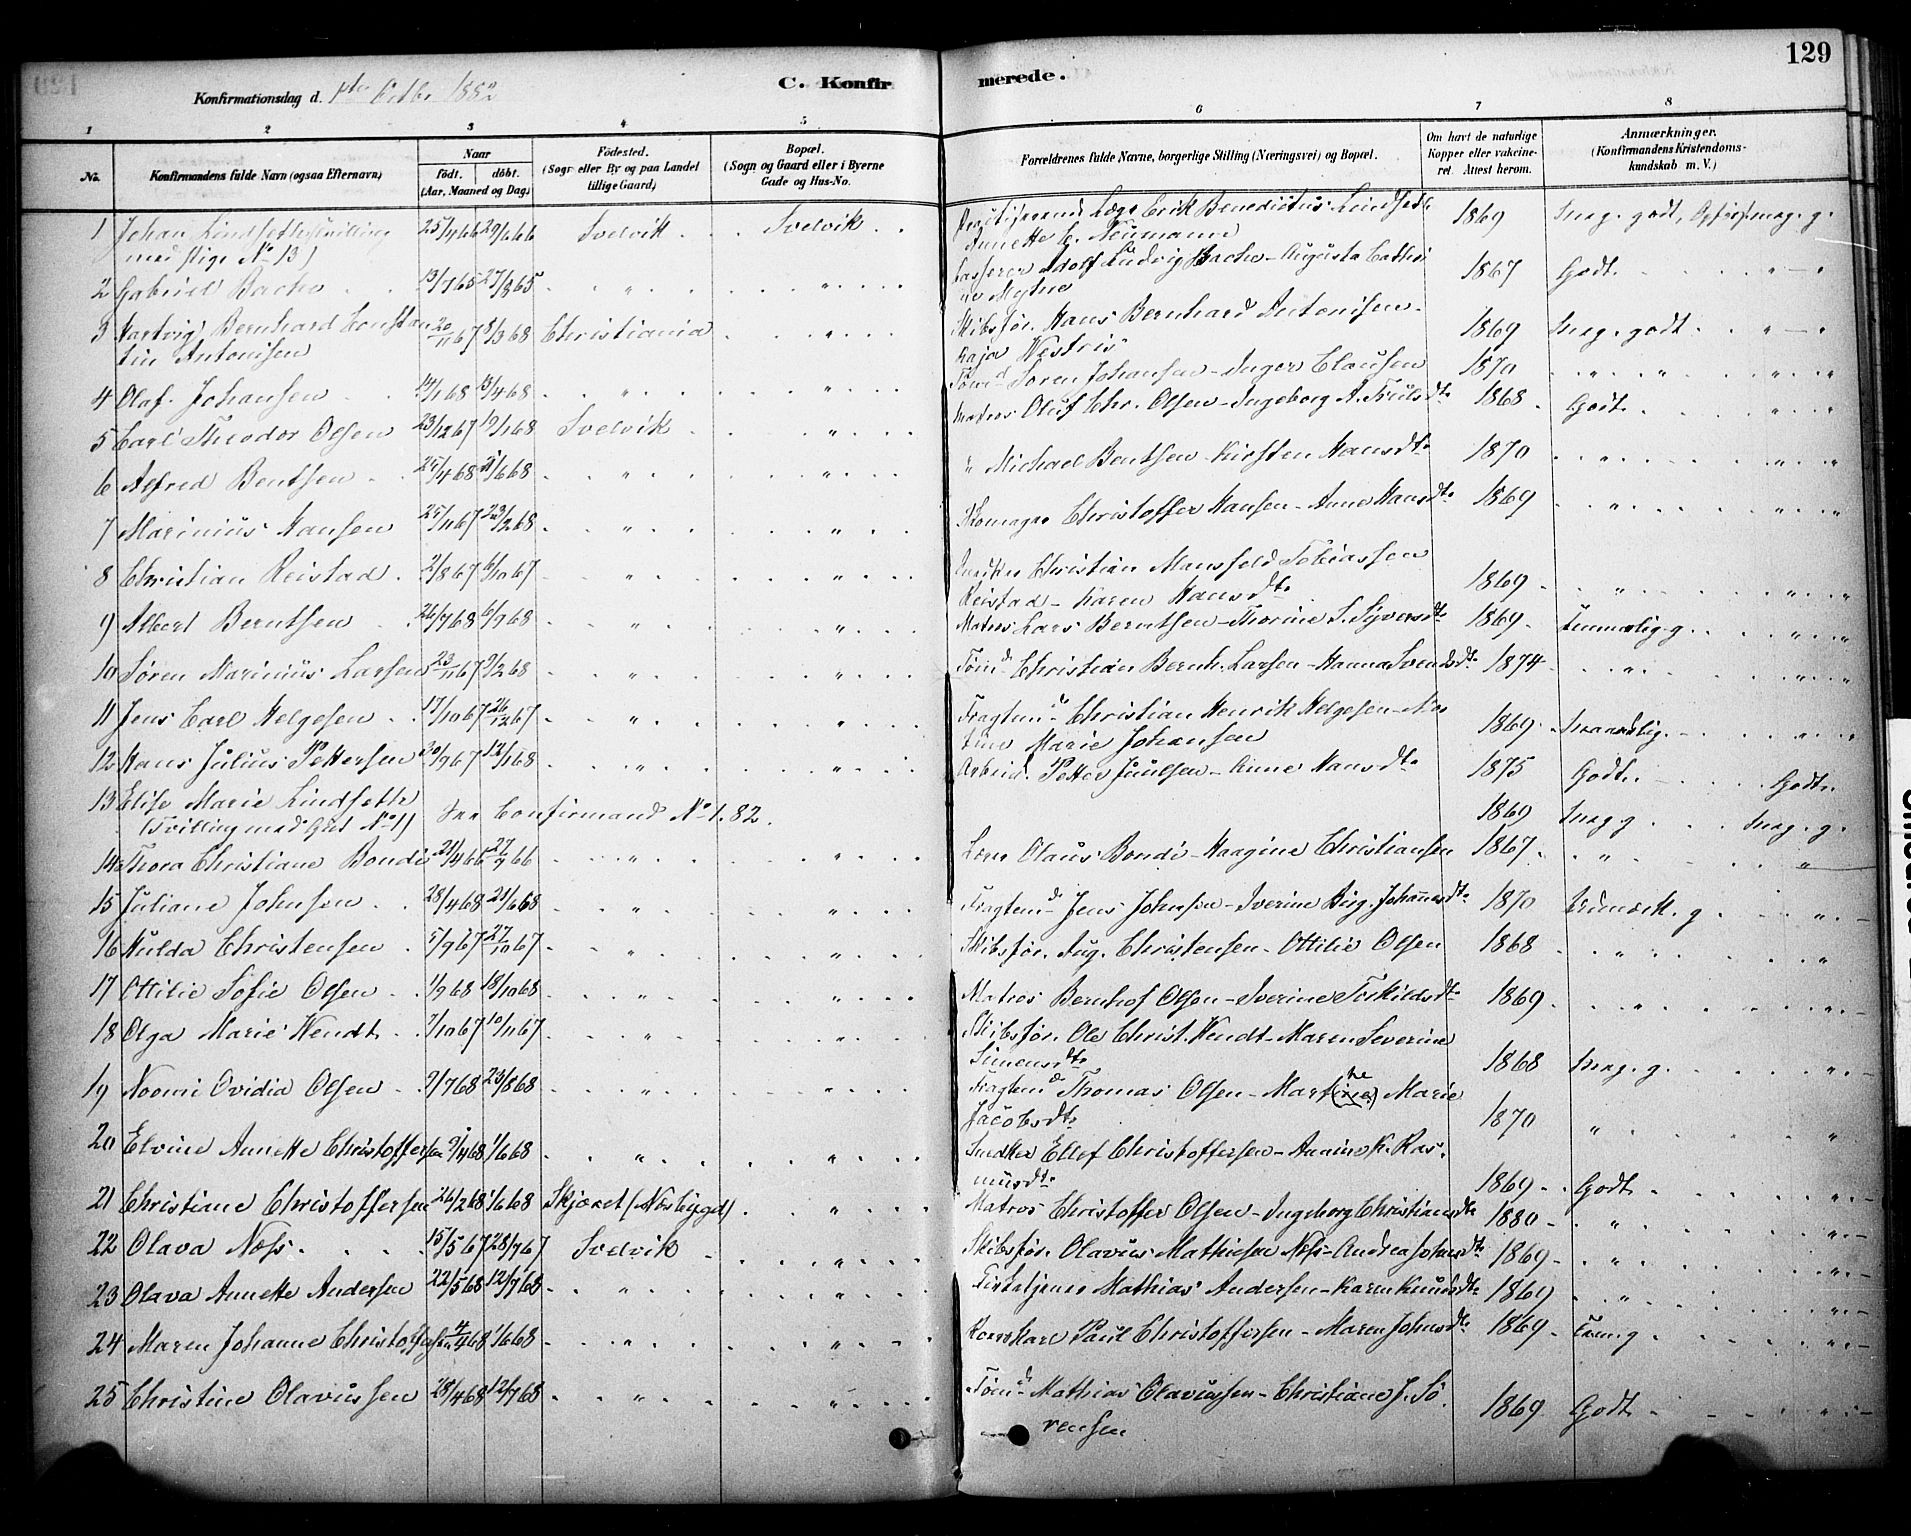 129
Konfirmationsdag d. 1ste Octbr 1882
C. Konfirmerede.
1 2 3 4 5 6 7 8
No.
Konfirmandens fulde Navn (ogsaa Efternavn)
Naar
født. døbt.
(Aar, Maaned og Dag)
Fødested.
(Sogn eller By og paa Landet
tillige Gaard)
Bopæl.
(Sogn og Gaard eller i Byerne
Gade og Hus-No.
Forældrenes fulde Navne, borgerlige Stilling (Næringsvei) og Bopæl.
Om havt de naturlige
Kopper eller vakcine-
ret. Attest herom.
Anmærkninger.
(Konfirmandens Kristendoms-
kundskab m. V.)
1 Johan Lindseth (Tvilling 25/4 66 29/6 66 Svelvik Svelvik Læge Erik Benedictus Lindseth 1869 Meg. godt,
med Pige No 13) Annette C. Neumann
2 Gabriel Bache 13/7 65 27/8 65 " " Kasserer Adolf Ludvig Bache - Augusta Cathri 1867 Godt
ne Mythe
3 Hartvig Bernhard Constan 20/11 67 8/3 68 Christiania " Skibsfør. Hans Bernhard Antonisen 1869 Meg. godt
tin Antonisen Kaja Westris
4 Olaf Johansen 14/1 68 13/4 68 " " Tømd Søren Johansen - Inger Clausen 1870 " "
5 Carl Theodor Olsen 23/12 67 19/1 68 Svelvik " Matros Oluf Chr. Olsen - Ingeborg A. Trulsdtr 1868 Godt
6 Alfred Bentsen 25/4 68 21/6 68 " " " Michael Bentsen - Kirsten Hansdtr 1870 "
7 Marinius Hansen 25/11 67 23/2 68 " " Skomager Christoffer Hansen - Anne Hansdtr 1869 "
8 Christian Reistad 2/8 67 6/10 67 " " Snedker Christian Mansfeld Tobiassen
Reistad - Karen Hansdtr 1869 "
9 Albert Berntsen 26/7 68 6/9 68 " " Matros Lars Berntsen - Thorine S. Syversdtr 1869 Temmelig g.
10 Søren Marinius Larsen 23/11 67 9/2 68 " " Tømd Christian Bernh. Larsen - Hanna Svendsdtr 1874 "
11 Jens Carl Helgesen 17/10 67 26/12 67 " " Fragtemd Christian Henrik Helgesen - Ma
tine Marie Johansen 1869 Maadelig
12 Hans Julius Pettersen 30/9 67 12/1 68 " " Arbeid. Petter Juulsen - Anne Hansdtr 1875 Godt Godt
13 Elise Marie Lindseth
(Tvilling med Gut No 1) Se Confirmand No 1. 82. 1869 Meg g Meg. g.
14 Thora Christiane Bondi 21/4 66 27/7 66 " " Lærer Olaus Bondi - Haagine Christiansen 1867 " "
15 Juliane Johnsen 28/4 68 21/6 68 " " Fragtemd Jens Johnsen - Iverine Birg. Johannesdtr 1870 Udmærk. g.
16 Hulda Christensen 5/9 67 27/10 67 " " Skibsfør. Aug. Christensen - Ottilie Olsen 1868 "
17 Ottilie Sofie Olsen 1/9 68 18/10 68 " " Matros Bernhof Olsen - Iverine Torkildsdtr 1869 "
18 Olga Marie Wendt 7/10 67 10/11 67 " " Skibsfør. Ole Christ. Wendt - Maren Severine
Simensdtr 1868 Meg. g.
19 Noomi Ovidia Olsen 9/7 68 23/8 68 " " Fragtemd Thomas Olsen - Marthe Marie
Jacobsdtr 1870 "
20 Elvine Annette Christoffersen 9/4 68 1/6 68 " " Snedker Ellef Christoffersen - K. Ras-
musdtr 1869 Godt
21 Christiane Christoffersen 26/2 68 1/6 68 Skjæret (Næsbygd) " Matros Christoffer Olsen - Ingeborg Christiansdtr 1880 "
22 Olava Næss 15/5 67 28/7 67 Svelvik " Skibsfør. Olavus Mathisen Næss - Andrea Johnsdtr 1869 "
23 Olava Annette Andersen 22/5 68 12/7 68 " " Kirketjener Mathias Andersen - Karen Knudsdtr 1869 "
24 Maren Johanne Christoffersen 4/4 68 1/6 68 " " Rorskarl Paul Christoffersen - Maren Johnsdtr 1869 Tem. g
25 Christine Olavussen 28/4 68 12/7 68 " " Tømd Mathias Olavussen - Christiane J. Sø-
rensen 1869 Godt